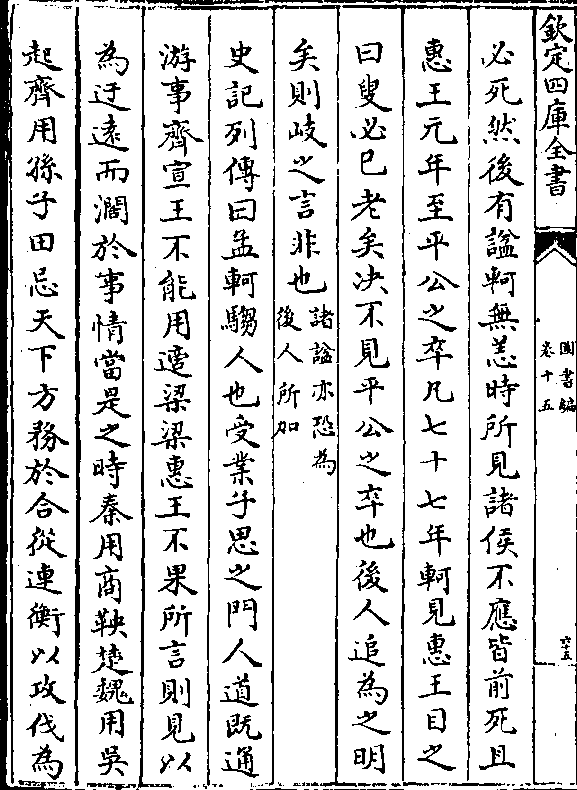 欽定四庫全書
圖書編
卷十五
六十五
必死然後有諡軻無恙時所見諸侯不應皆前死且
惠王元年至平公之卒凡七十七年軻見惠王目之
曰叟必已老矣決不見平公之卒也後人追為之明
矣則岐之言非也諸諡亦恐為
後人所加
史記列傳曰孟軻騶人也受業子思之門人道既通
游事齊宣王不能用適梁梁惠王不果所言則見以
為迂遠而濶於事情當是之時秦用商鞅楚魏用吳
起齊用孫子田忌天下方務於合從連衡以攻伐為